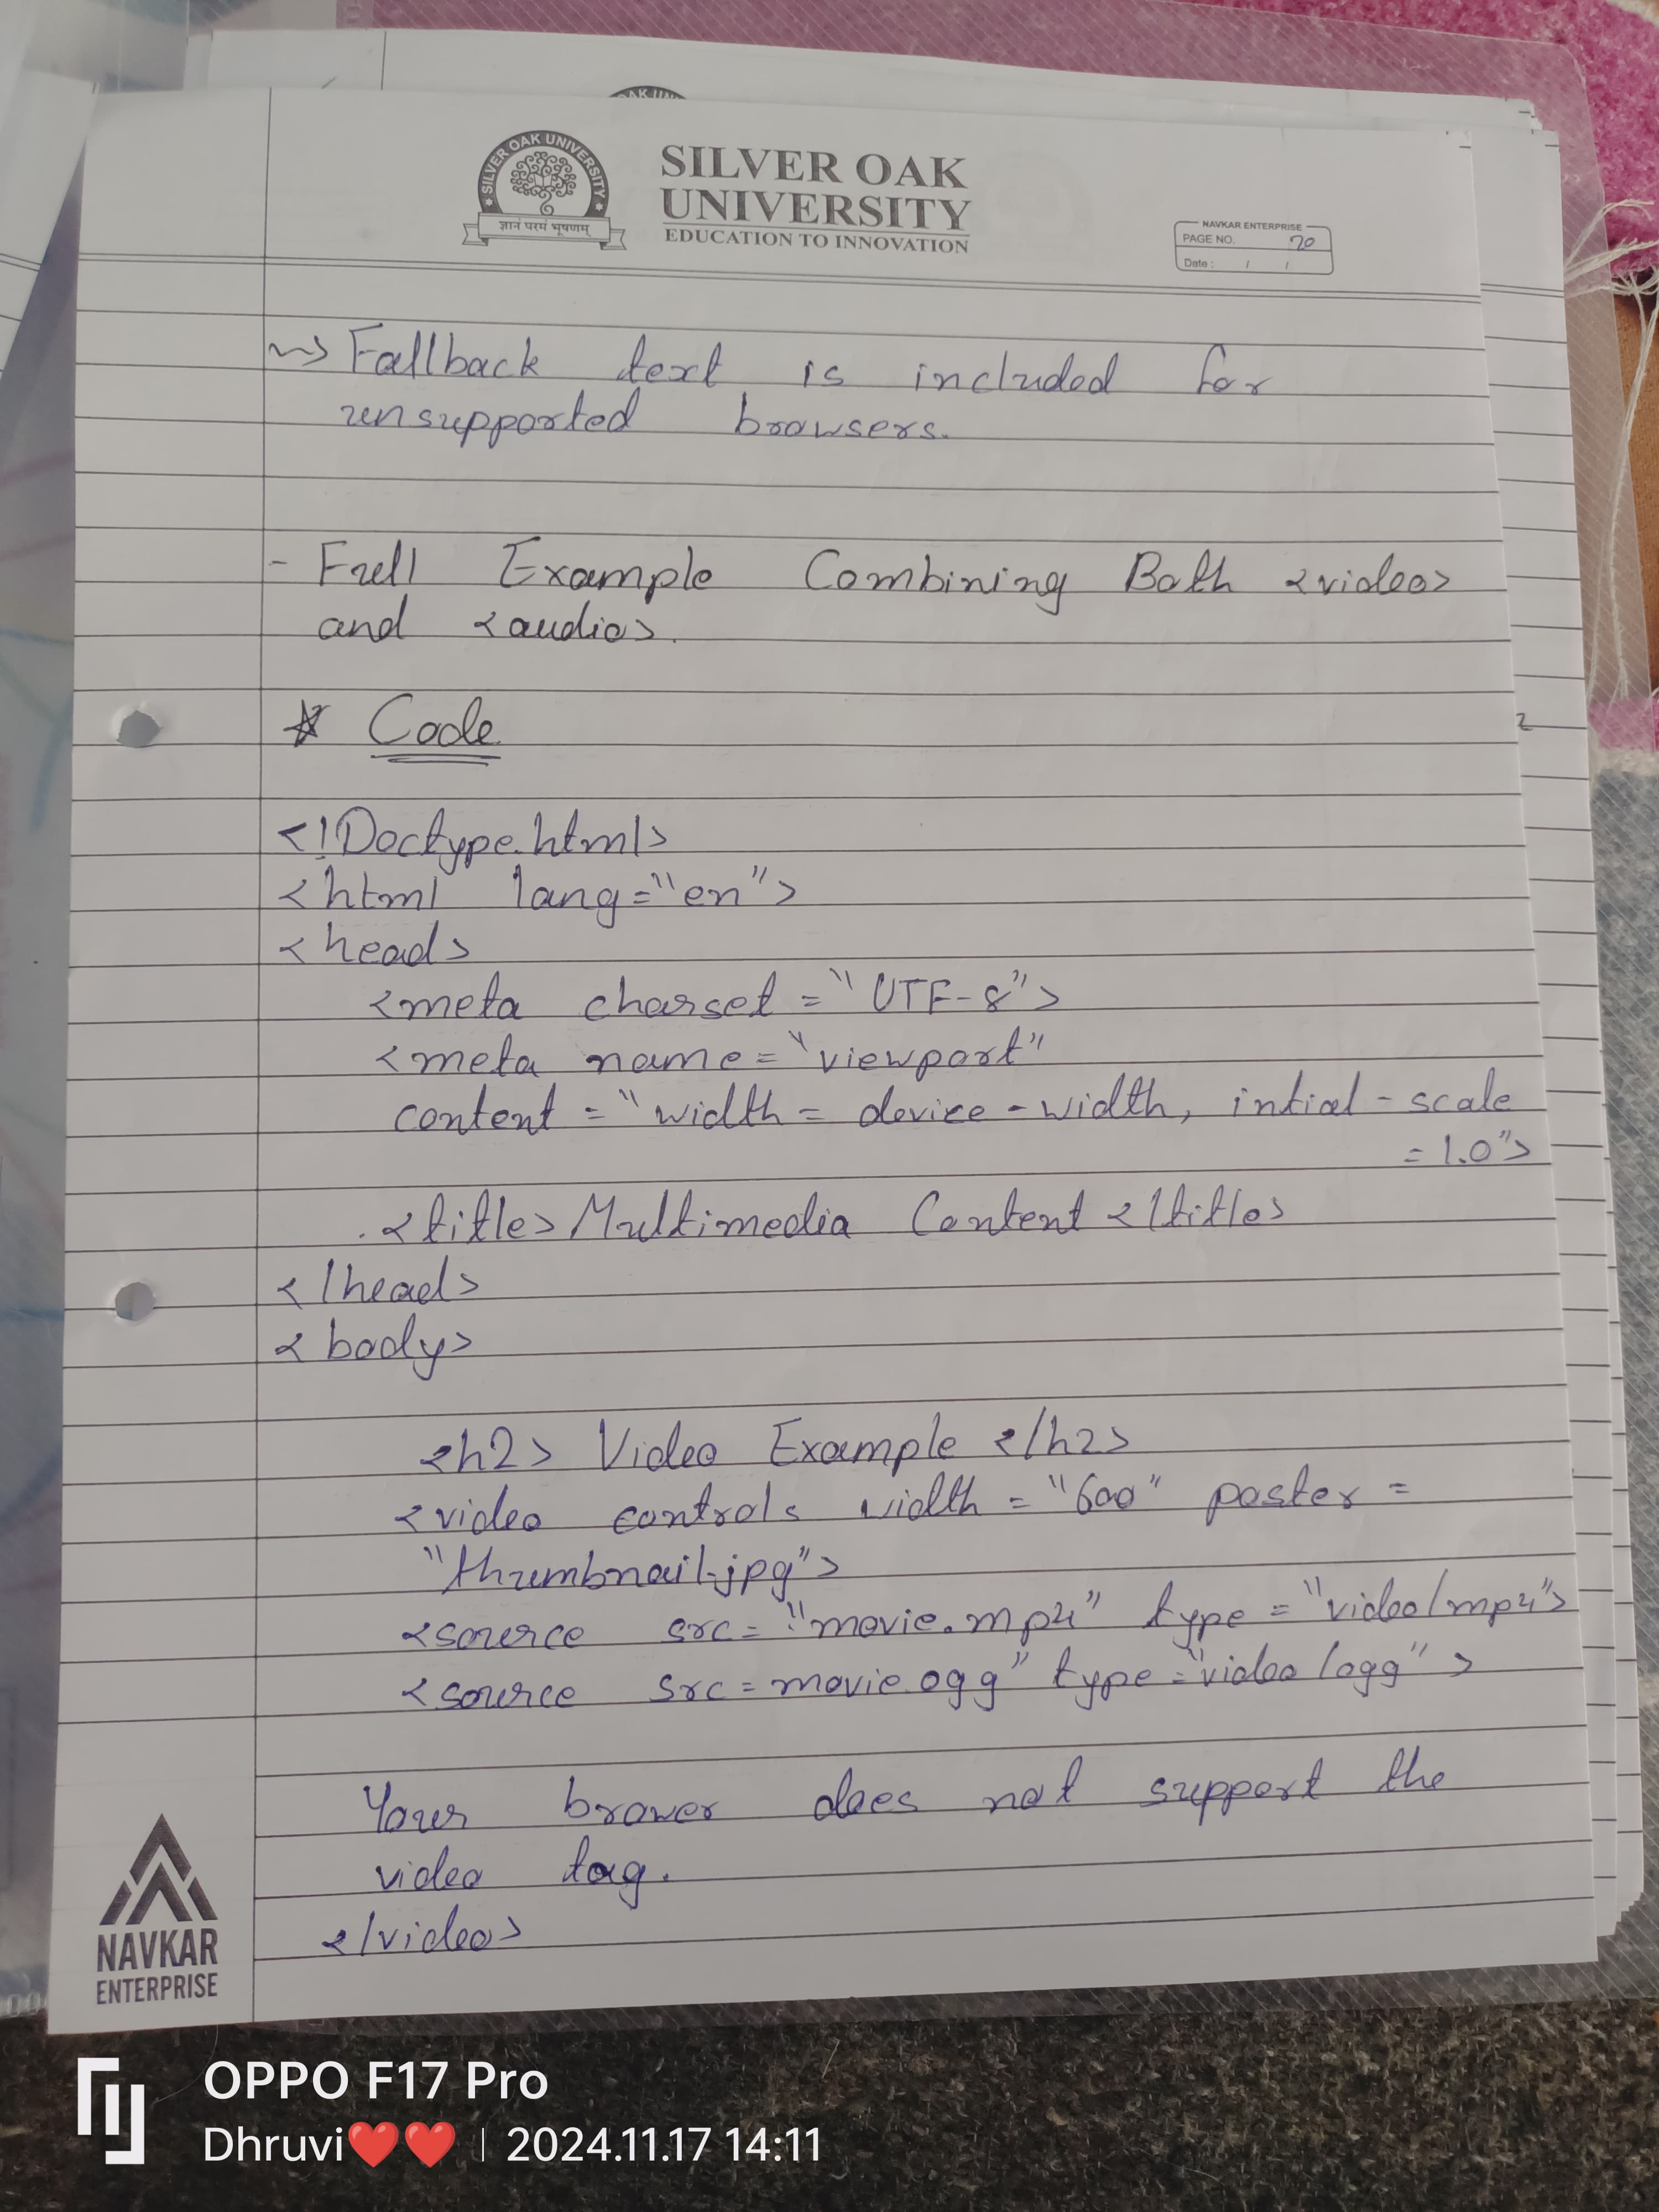 AK UN
SILVER OAK UNIVERSITY
ज्ञानं परमं भूषणम्
SILVER OAK
UNIVERSITY
EDUCATION TO INNOVATION
NAVKAR ENTERPRISE
PAGE NO. 70
Date : / /
~> Fallback text is included for
unsupported browsers.
- Full Example Combining Both <video>
and <audio>.
☆ Code
<!Doctype.html>
<html lang="en">
<head>
<meta charset="UTF-8">
<meta name="viewport"
content="width=device-width, intial-scale
=1.0">
<title>Multimedia Content</title>
</head>
<body>
<h2> Video Example </h2>
<video controls width="600" poster=
"thumbnail.jpg">
<source src="movie.mp4" type="video/mp4">
<source src=movie.ogg" type="video/ogg">
Your brower does not support the
video tag.
</video>
2
NAVKAR
ENTERPRISE
OPPO F17 Pro
Dhruvi❤️❤️ | 2024.11.17 14:11